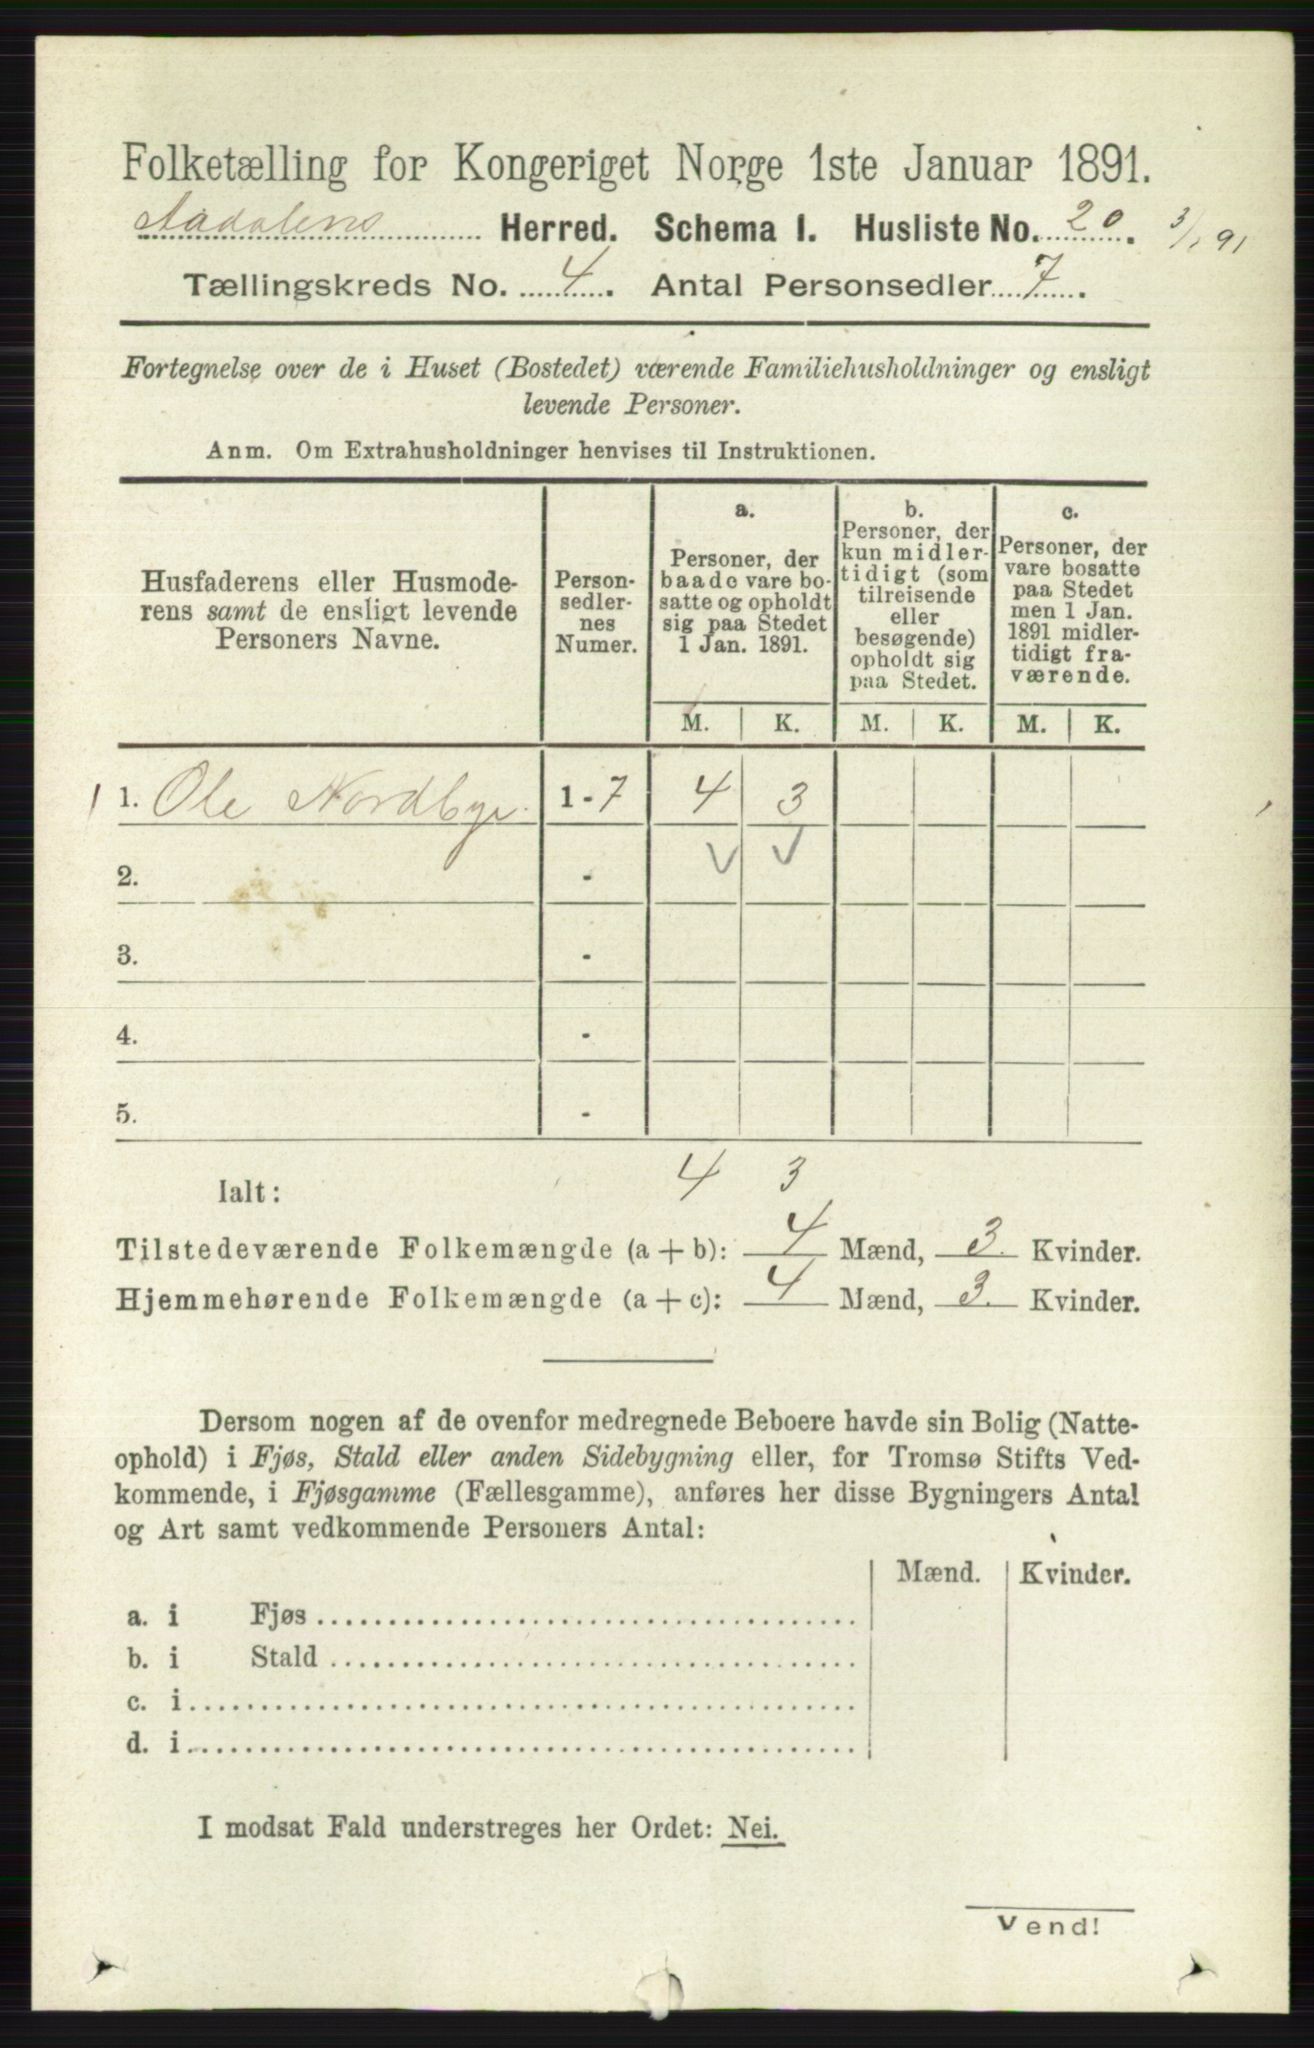 Folketælling for Kongeriget Norge 1ste Januar 1891.
Aadalens Herred. Schema I. Husliste No. 20. 3/1 91
Tællingskreds No. 4. Antal Personsedler 7.
Fortegnelse over de i Huset (Bostedet) værende Familiehusholdninger og ensligt
levende Personer.
Anm. Om Extrahusholdninger henvises til Instruktionen.
Husfaderens eller Husmode-
rens samt de ensligt levende
Personers Navne.
Person-
sedler-
nes
Numer.
a.
Personer, der
baade vare bo-
satte og opholdt
sig paa Stedet
1 Jan. 1891.
b.
Personer, der
kun midler-
tidigt (som
tilreisende
eller
besøgende)
opholdt sig
paa Stedet.
c.
Personer, der
vare bosatte
paa Stedet
men 1 Jan.
1891 midler-
tidigt fra-
værende.
M. K. M. K. M. K.
1 1. Ole Nordbye. 1 - 7 4 3
2. -
3. -
4. -
5. -
Ialt: 4 3
Tilstedeværende Folkemængde (a + b): 4 Mænd, 3. Kvinder.
Hjemmehørende Folkemængde (a + c): 4 Mænd, 3. Kvinder.
Dersom nogen af de ovenfor medregnede Beboere havde sin Bolig (Natte-
ophold) i Fjøs, Stald eller anden Sidebygning eller, for Tromsø Stifts Ved-
kommende, i Fjøsgamme (Fællesgamme), anføres her disse Bygningers Antal
og Art samt vedkommende Personers Antal:
Mænd. Kvinder.
a. i Fjøs
b. i Stald
c. i
d. i
I modsat Fald understreges her Ordet: Nei.
Vend!